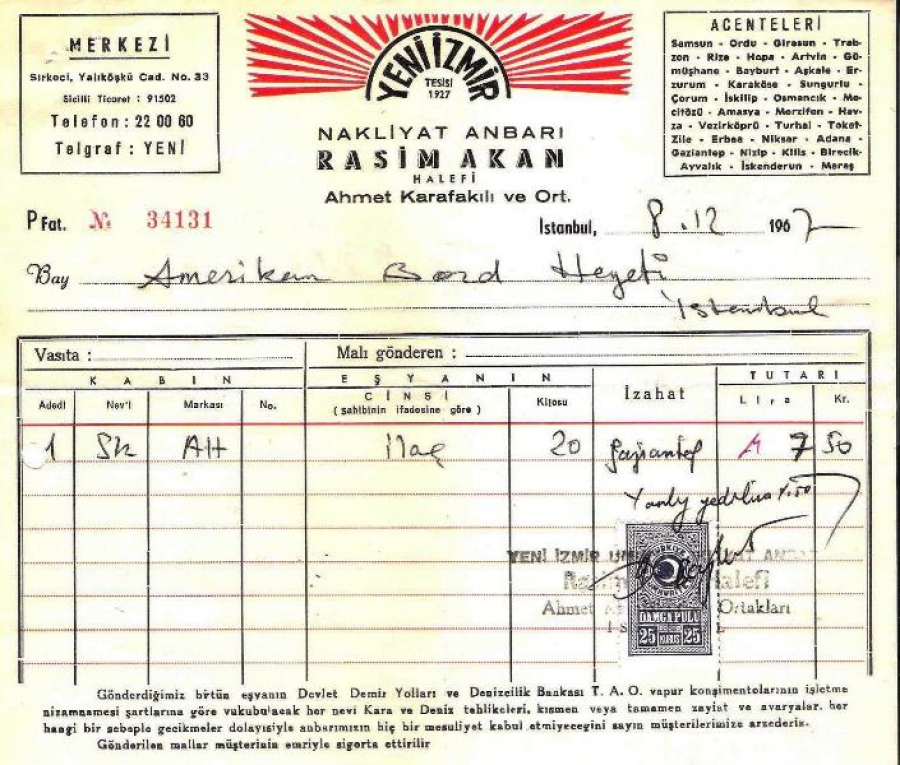 MERKEZİ
Sirkeci, Yalıköşkü Cad. No. 33
Sicilli Ticaret : 91502
Telefon : 22 00 60
Telgraf : YENİ
YENİ İZMİR
TESİSİ
1927
NAKLİYAT ANBARI
RASİM AKAN
HALEFİ
Ahmet Karafakılı ve Ort.
ACENTELERİ
Samsun - Ordu - Giresun - Trab-
zon - Rize - Hopa - Artvin - Gü-
müşhane - Bayburt - Aşkale - Er-
zurum - Karaköse - Sungurlu -
Çorum - İskilip - Osmancık - Me-
citözü - Amasya - Merzifon - Hav-
za - Vezirköprü - Turhal - Tokat-
Zile - Erbaa - Niksar - Adana -
Gaziantep - Nizip - Kilis - Birecik-
Ayvalık - İskenderun - Maraş
P Fat. № 34131
İstanbul, 8.12 1967
Bay Amerikan Bord Heyeti
İstanbul
Vasıta : Malı gönderen :
KABIN EŞYANIN İzahat TUTARI
Adedi Nev'i Markası No. CİNSİ (sahibinin ifadesine göre) Kilosu Lira Kr.
1 Sk AH İlaç 20 Gaziantep 7 50
Yalnız yedilira
YENİ İZMİR
Ahmet Ortakları
DAMGA PULU
25 KURUŞ 25
Gönderdiğimiz bütün eşyanın Devlet Demir Yolları ve Denizcilik Bankası T. A. O. vapur konşimentolarının işletme
nizamnamesi şartlarına göre vukubulacak her nevi Kara ve Deniz tehlikeleri, kısmen veya tamamen zayiat ve avaryalar, her
hangi bir sebeple gecikmeler dolayısiyle anbarımızın hiç bir mesuliyet kabul etmiyeceğini sayın müşterilerimize arzederiz.
Gönderilen mallar müşterinin emriyle sigorta ettirilir